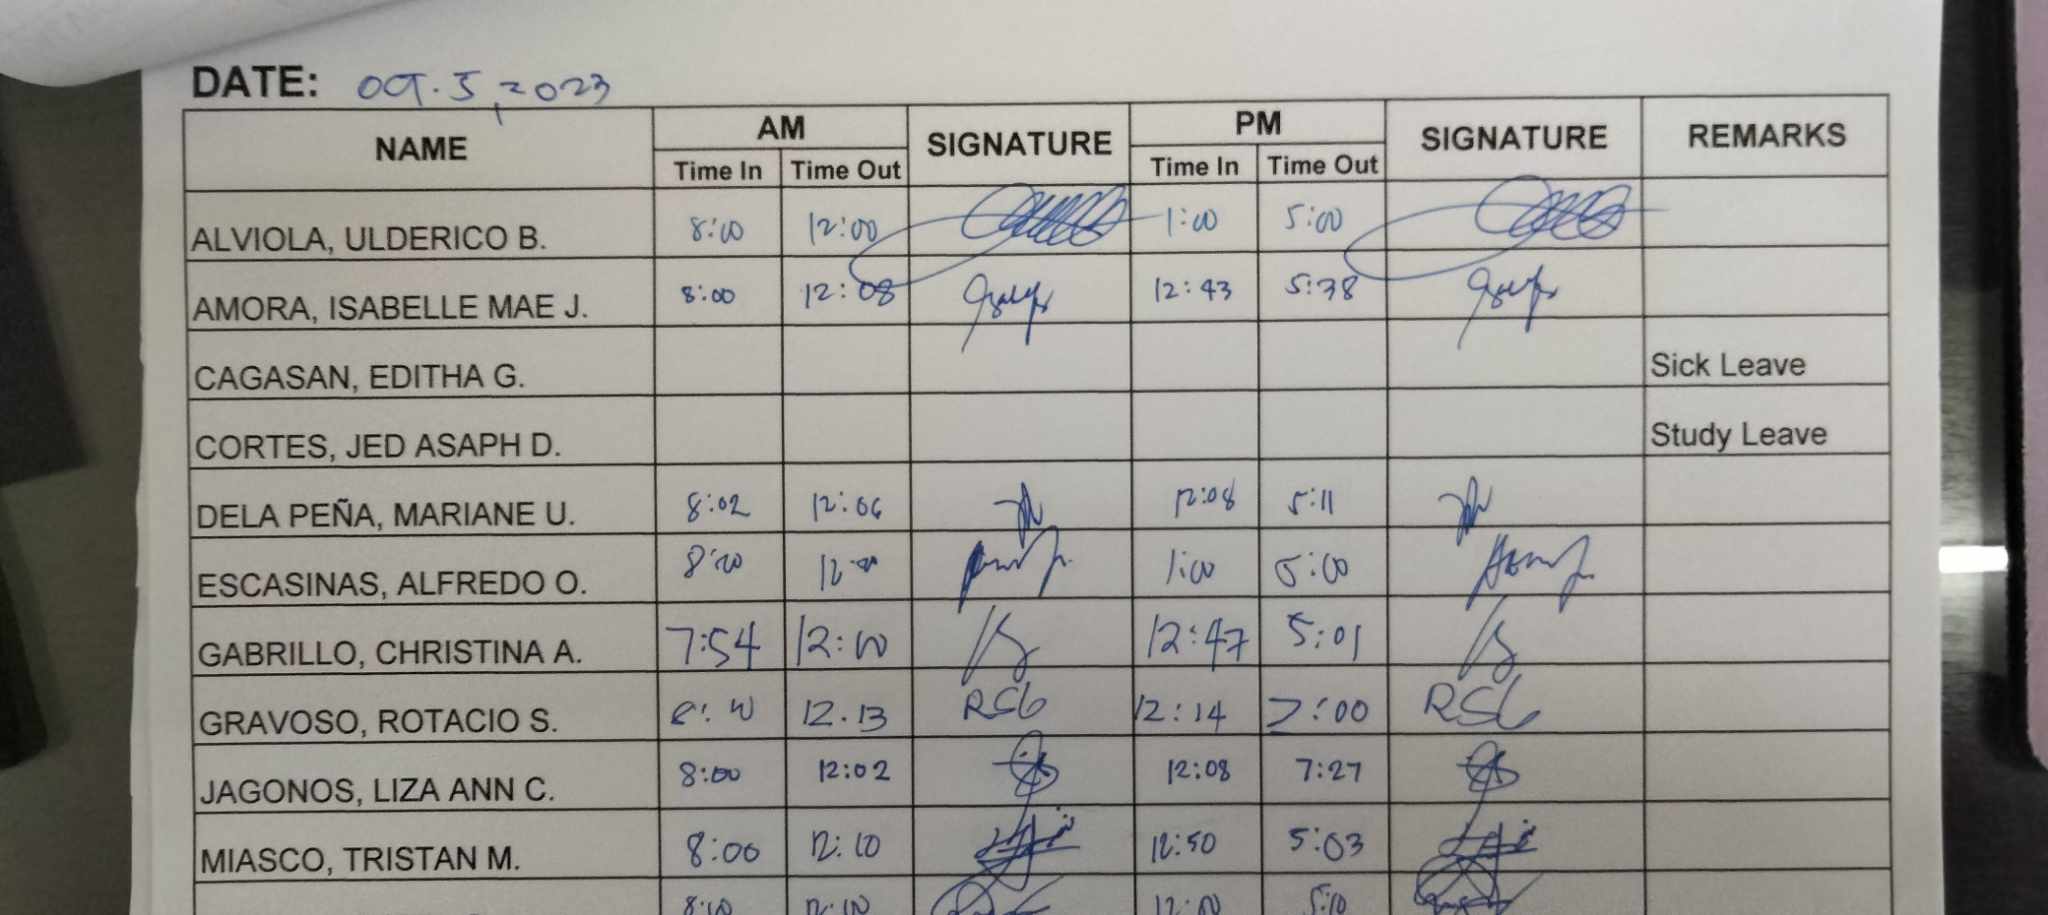 DATE: OCT. 5, 2023
NAME AM SIGNATURE PM SIGNATURE REMARKS
Time In Time Out Time In Time Out
ALVIOLA, ULDERICO B. 8:00 12:00 1:00 5:00
AMORA, ISABELLE MAE J. 8:00 12:08 12:43 5:38
CAGASAN, EDITHA G. Sick Leave
CORTES, JED ASAPH D. Study Leave
DELA PEÑA, MARIANE U. 8:02 12:06 12:08 5:11
ESCASINAS, ALFREDO O. 8:00 12:00 1:00 5:00
GABRILLO, CHRISTINA A. 7:54 12:00 12:47 5:01
GRAVOSO, ROTACIO S. 12.13 RSG 12:14 7:00 RSG
JAGONOS, LIZA ANN C. 8:00 12:02 12:08 7:27
MIASCO, TRISTAN M. 8:00 12:10 12:50 5:03